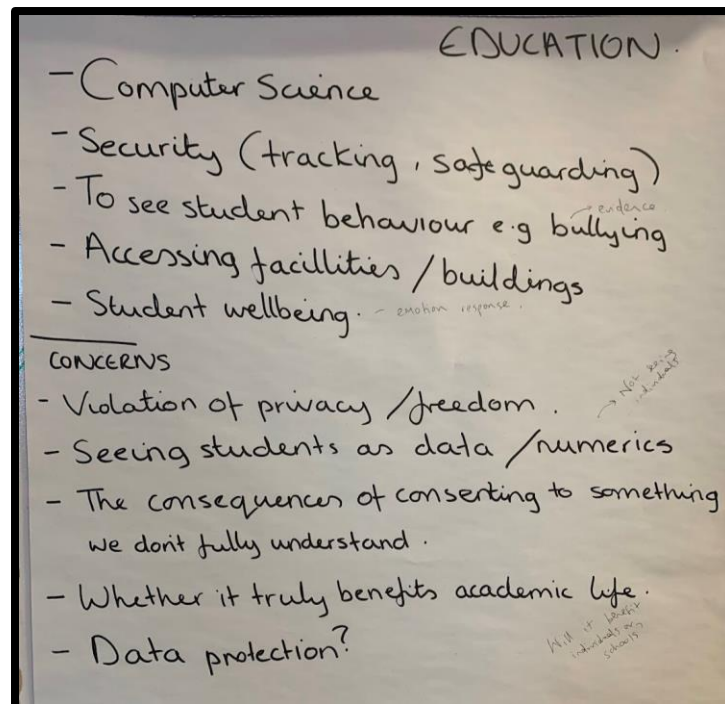 EDUCATION.
- Computer Science
- Security (tracking, safeguarding)
- To see student behaviour e.g bullying
→ evidence
- Accessing facillities / buildings
- Student wellbeing. - emotion response.
CONCERNS
- Violation of privacy / freedom.
→ Not being
individuals
- Seeing students as data / numerics
- The consequences of consenting to something
we don't fully understand.
- Whether it truly benefits academic life.
Will it benefit
individuals or
schools?
- Data protection?